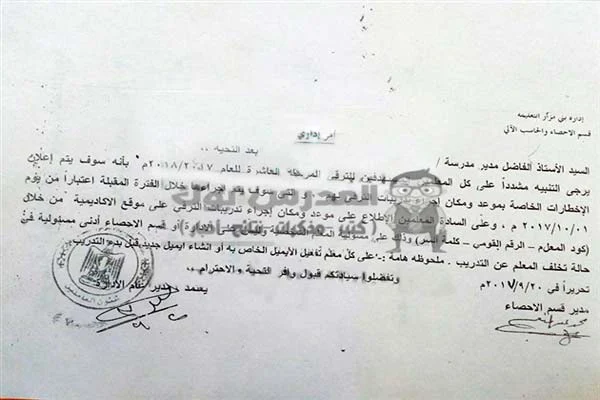 إدارة بني مزار التعليمية
قسم الاحصاء والحاسب الآلي
أمر إداري
بعد التحية ،،
السيد الأستاذ الفاضل مدير مدرسة /
يرجى التنبيه مشدداً على كل للترقى المرحلة العاشرة للعام ٢٠١٨/٢٠١٧م بأنه سوف يتم إعلان
الإخطارات الخاصة بموعد ومكان إجراء تدريبات الترقى لهم التى سوف يتم إجراءها خلال الفترة المقبلة اعتباراً من يوم
٢٠١٧/١٠/٠١م ، وعلى السادة المعلمين الاطلاع على موعد ومكان إجراء تدريبات الترقى على موقع الاكاديمية من خلال
(كود المعلم – الرقم القومي – كلمة السر) على مسئولية المعلم الشخصية وليس على الادارة أو قسم الاحصاء أدنى مسئولية في
حالة تخلف المعلم عن التدريب . ملحوظه هامة :- على كل معلم تفعيل الايميل الخاص به أو انشاء ايميل جديد قبل بدء التدريب
وتفضلوا سيادتكم قبول وافر التحية والاحترام ،،
تحريراً في ٢٠١٧/٩/٢٠م
يعتمد ، مدير عام الادارة
مدير قسم الاحصاء
المدرس بوك